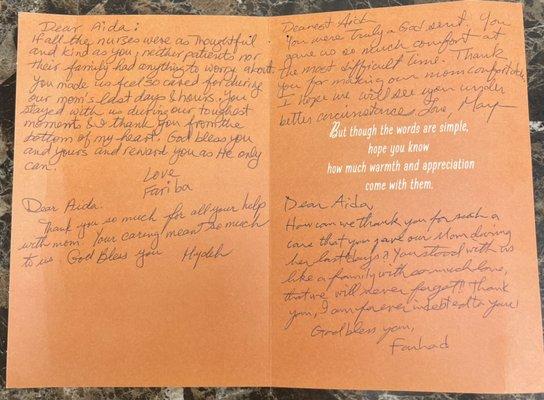 Dear Aida:
If all the nurses were as Thoughtful
and kind as you, neither patients nor
their family had anything to worry about.
You made us feel so cared for during
our mom's last days & hours. You
stayed with us during our toughest
moments & I thank you from the
bottom of my heart. God bless you
and yours and reward you as He only
can.
Love
Fariba
Dear Aida.
Thank you so much for all your help
with mom. Your caring mean the much
to us. God Bless you Hydeh
Dearest
You were truly a God sent. You
gave us so much comfort at
the most difficult time. Thank
you for making our mom comfortable.
I hope we will see you under
better circumstances Love Mary
But though the words are simple,
hope you know
how much warmth and appreciation
come with them.
Dear Aida,
How can we thank you for such a
care that you gave our Mom during
her last days? You stood with us
like a family with so much love,
that we will never forget!! Thank
you, I am forever indebted to you!
God bless you,
Farhad